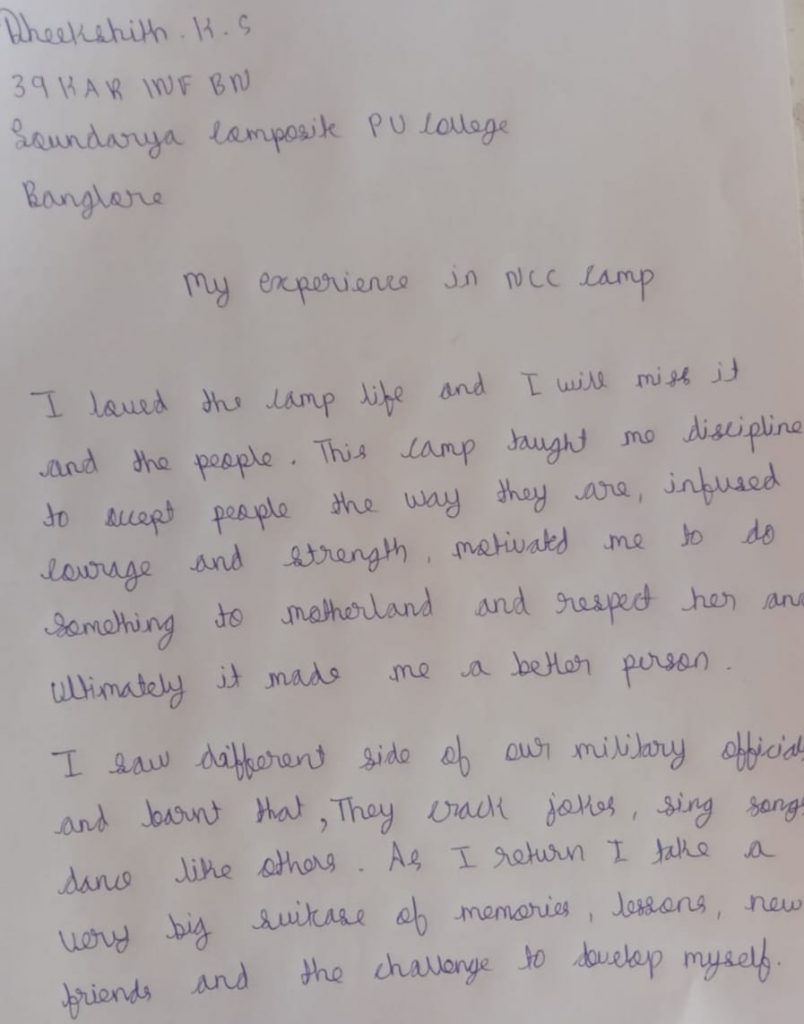 Dheekshith. K. S
39 KAR INF BN
Soundarya Composite PU College
Banglore
My experience in NCC Camp
I loved the camp life and I will miss it
and the people. This camp taught me discipline
to accept people the way they are, infused
courage and strength, motivated me to do
something to motherland and respect her and
ultimately it made me a better person.
I saw different side of our military officials
and learnt that, They crack jokes, sing songs
dance like others. As I return I take a
very big suitcase of memories, lessons, new
friends and the challenge to develop myself.